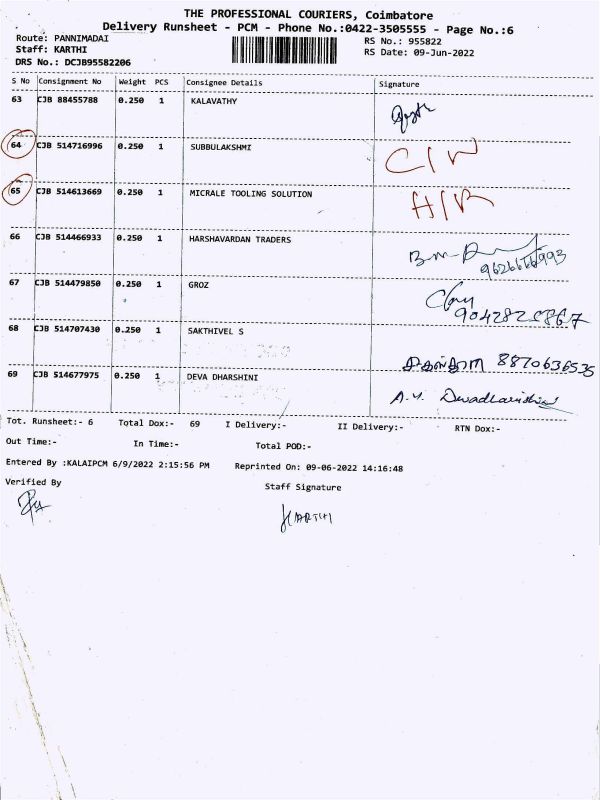 THE PROFESSIONAL COURIERS, Coimbatore
Delivery Runsheet - PCM - Phone No.:0422-3505555 - Page No.:6
Route: PANNIMADAI RS No.: 955822
Staff: KARTHI RS Date: 09-Jun-2022
DRS No.: DCJB95582206
S No Consignment No Weight PCS Consignee Details Signature
63 CJB 88455788 0.250 1 KALAVATHY
64 CJB 514716996 0.250 1 SUBBULAKSHMI C/N
65 CJB 514613669 0.250 1 MICRALE TOOLING SOLUTION
66 CJB 514466933 0.250 1 HARSHAVARDAN TRADERS
67 CJB 514479850 0.250 1 GROZ
68 CJB 514707430 0.250 1 SAKTHIVEL S 8870636535
69 CJB 514677975 0.250 1 DEVA DHARSHINI
Tot. Runsheet:- 6 Total Dox:- 69 I Delivery:- II Delivery:- RTN Dox:-
Out Time:- In Time:- Total POD:-
Entered By :KALAIPCM 6/9/2022 2:15:56 PM Reprinted On: 09-06-2022 14:16:48
Verified By Staff Signature
KARTHI